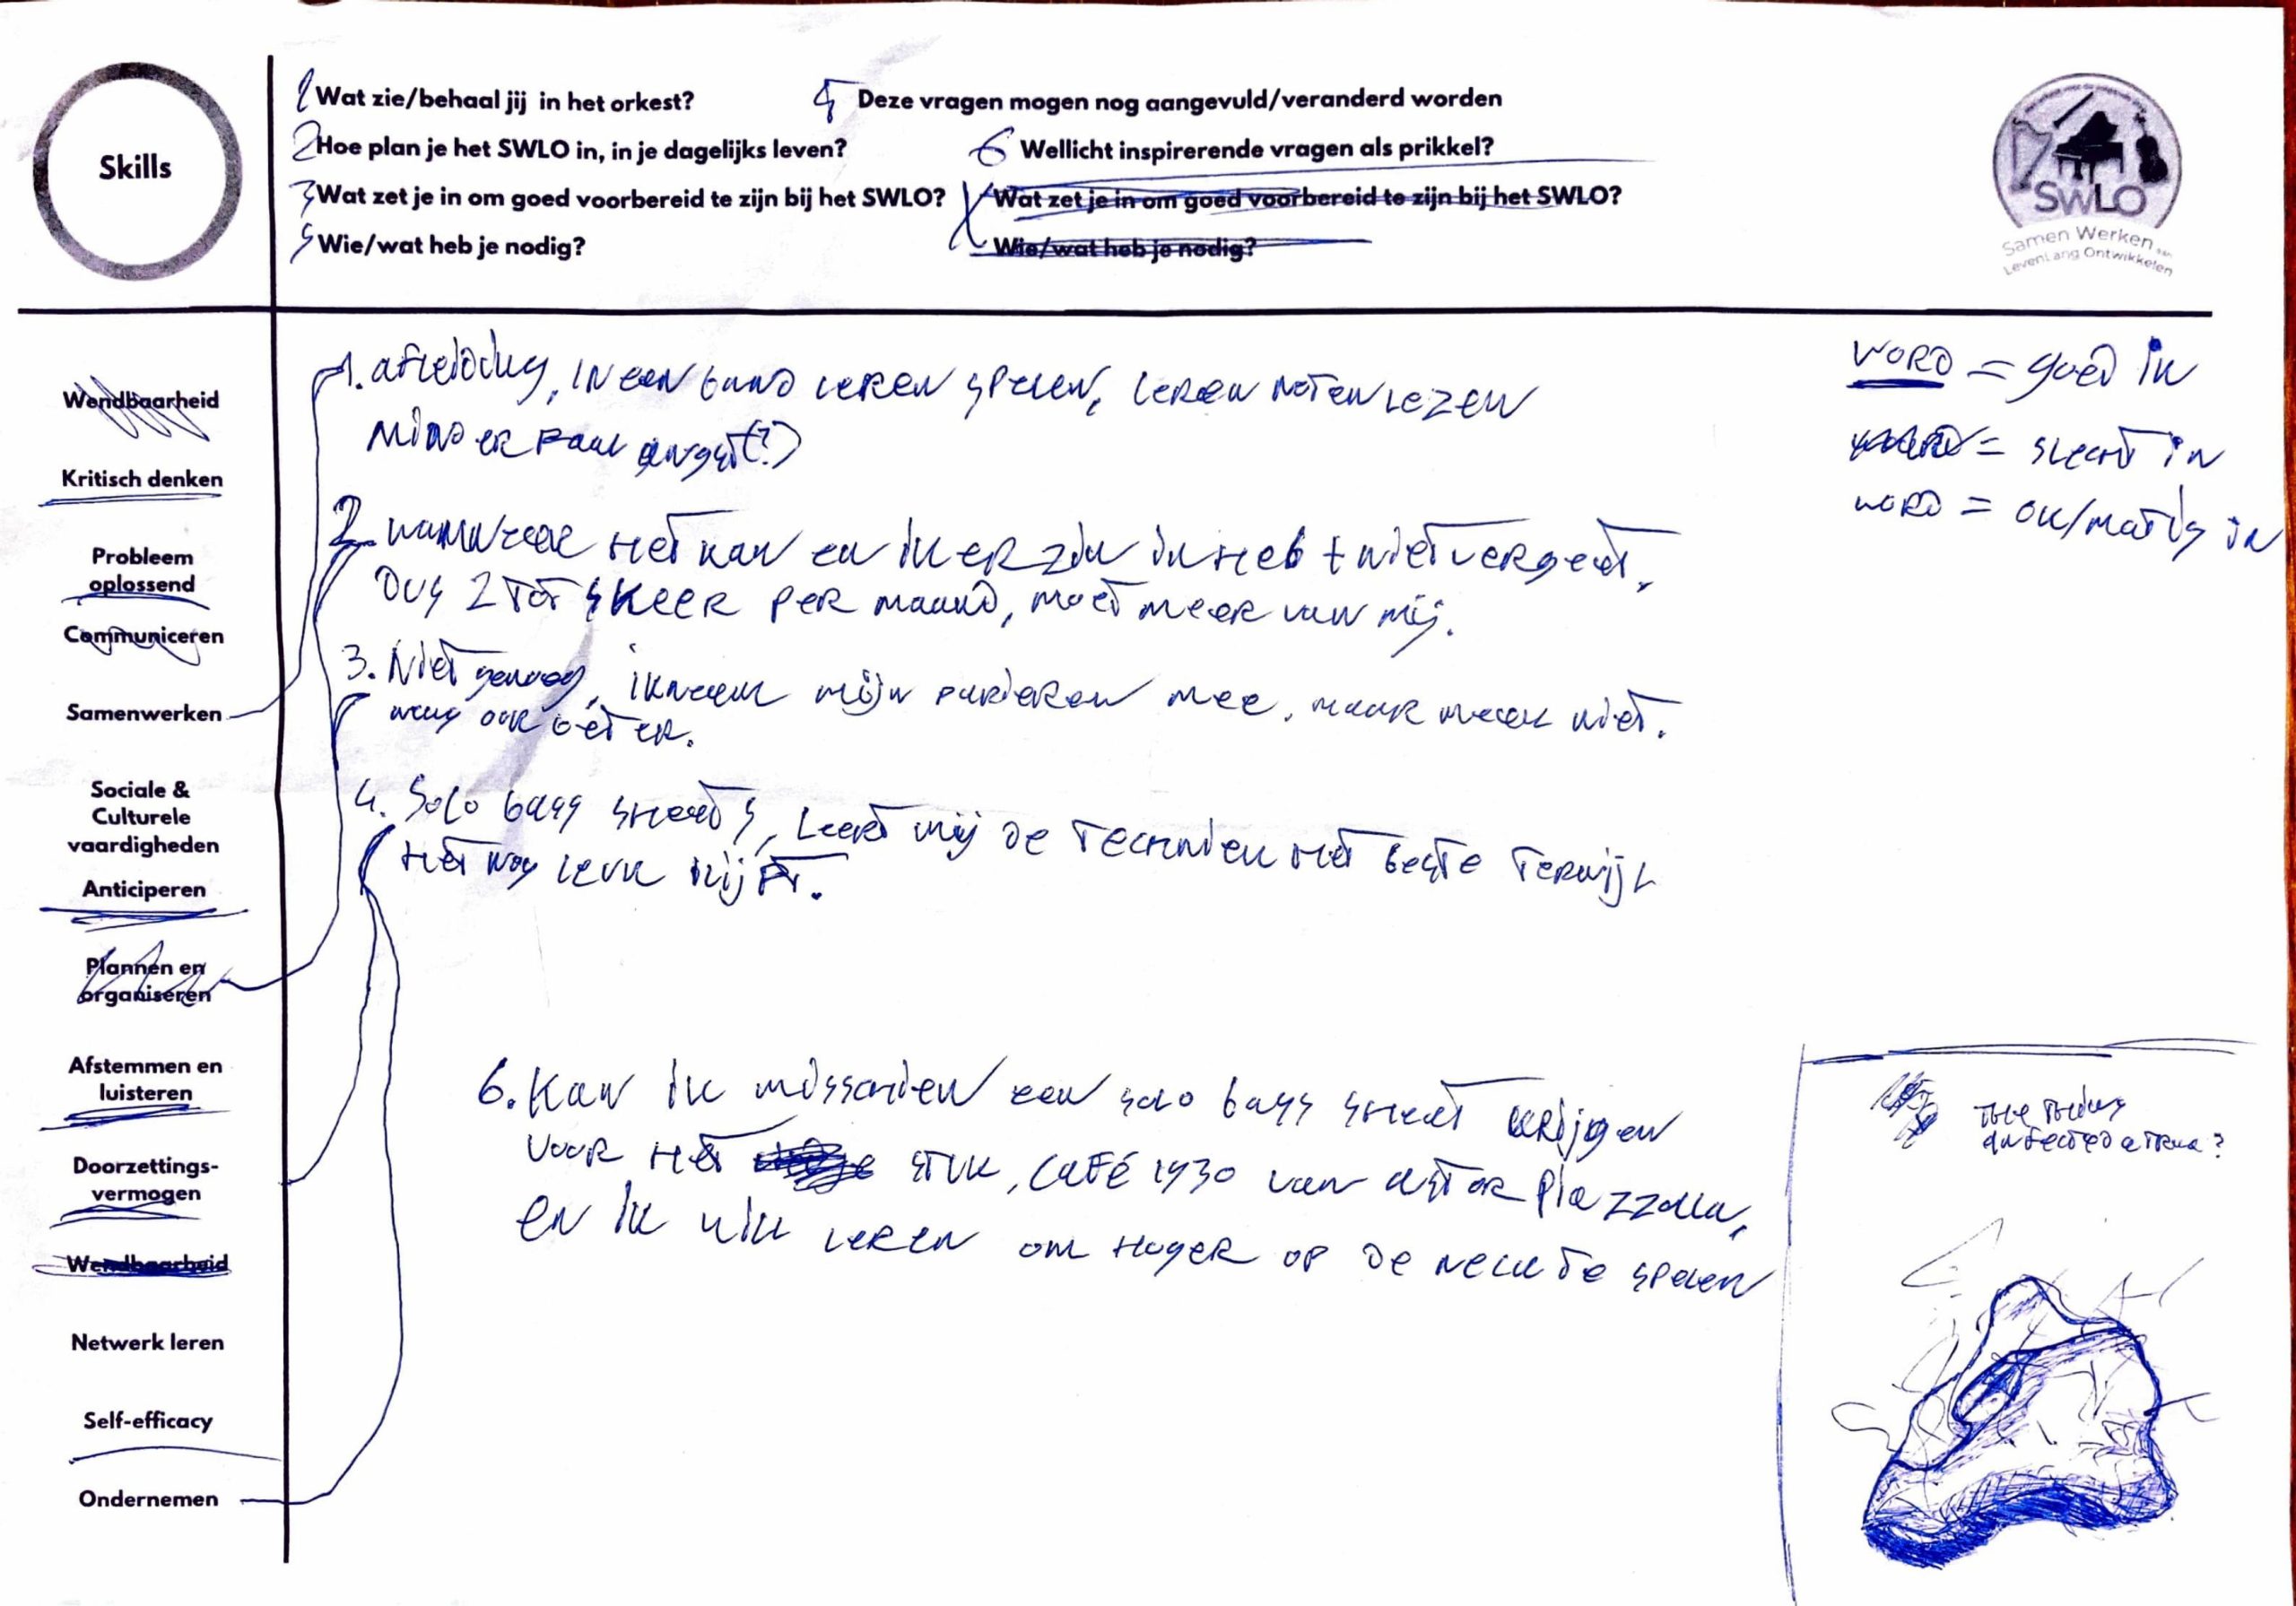 Skills
1 Wat zie/behaal jij in het orkest?
2 Hoe plan je het SWLO in, in je dagelijks leven?
3 Wat zet je in om goed voorbereid te zijn bij het SWLO?
Wie/wat heb je nodig?
5 Deze vragen mogen nog aangevuld/veranderd worden
6 Wellicht inspirerende vragen als prikkel?
Wat zet je in om goed voorbereid te zijn bij het SWLO?
Wie/wat heb je nodig?
SWLO
Samen Werken aan
LevenLang Ontwikkelen
Wendbaarheid
Kritisch denken
Probleem
oplossend
Communiceren
Samenwerken
Sociale &
Culturele
vaardigheden
Anticiperen
Plannen en
organiseren
Afstemmen en
luisteren
Doorzettings-
vermogen
Wendbaarheid
Netwerk leren
Self-efficacy
Ondernemen
1. afleiding, in een band leren spelen, leren noten lezen
minder faal angst(?)
2. wanneer het kan en ik er zin in heb + niet vergeet,
Dus 2 tot 4 keer per maand, moet meer van mij.
3. Niet genoeg, ik neem mijn papieren mee, maar meer niet.
mag ook beter.
4. Solo bass sheets, Leert mij de technieken het beste terwijl
het nog leuk blijft.
6. Kan ik misschien een solo bass sheet krijgen
voor het stuk, Café 1930 van astor Piazzolla,
en ik wil leren om hoger op de neck te spelen
word = goed in
word = slecht in
word = ok/matig in
The thing
infected a